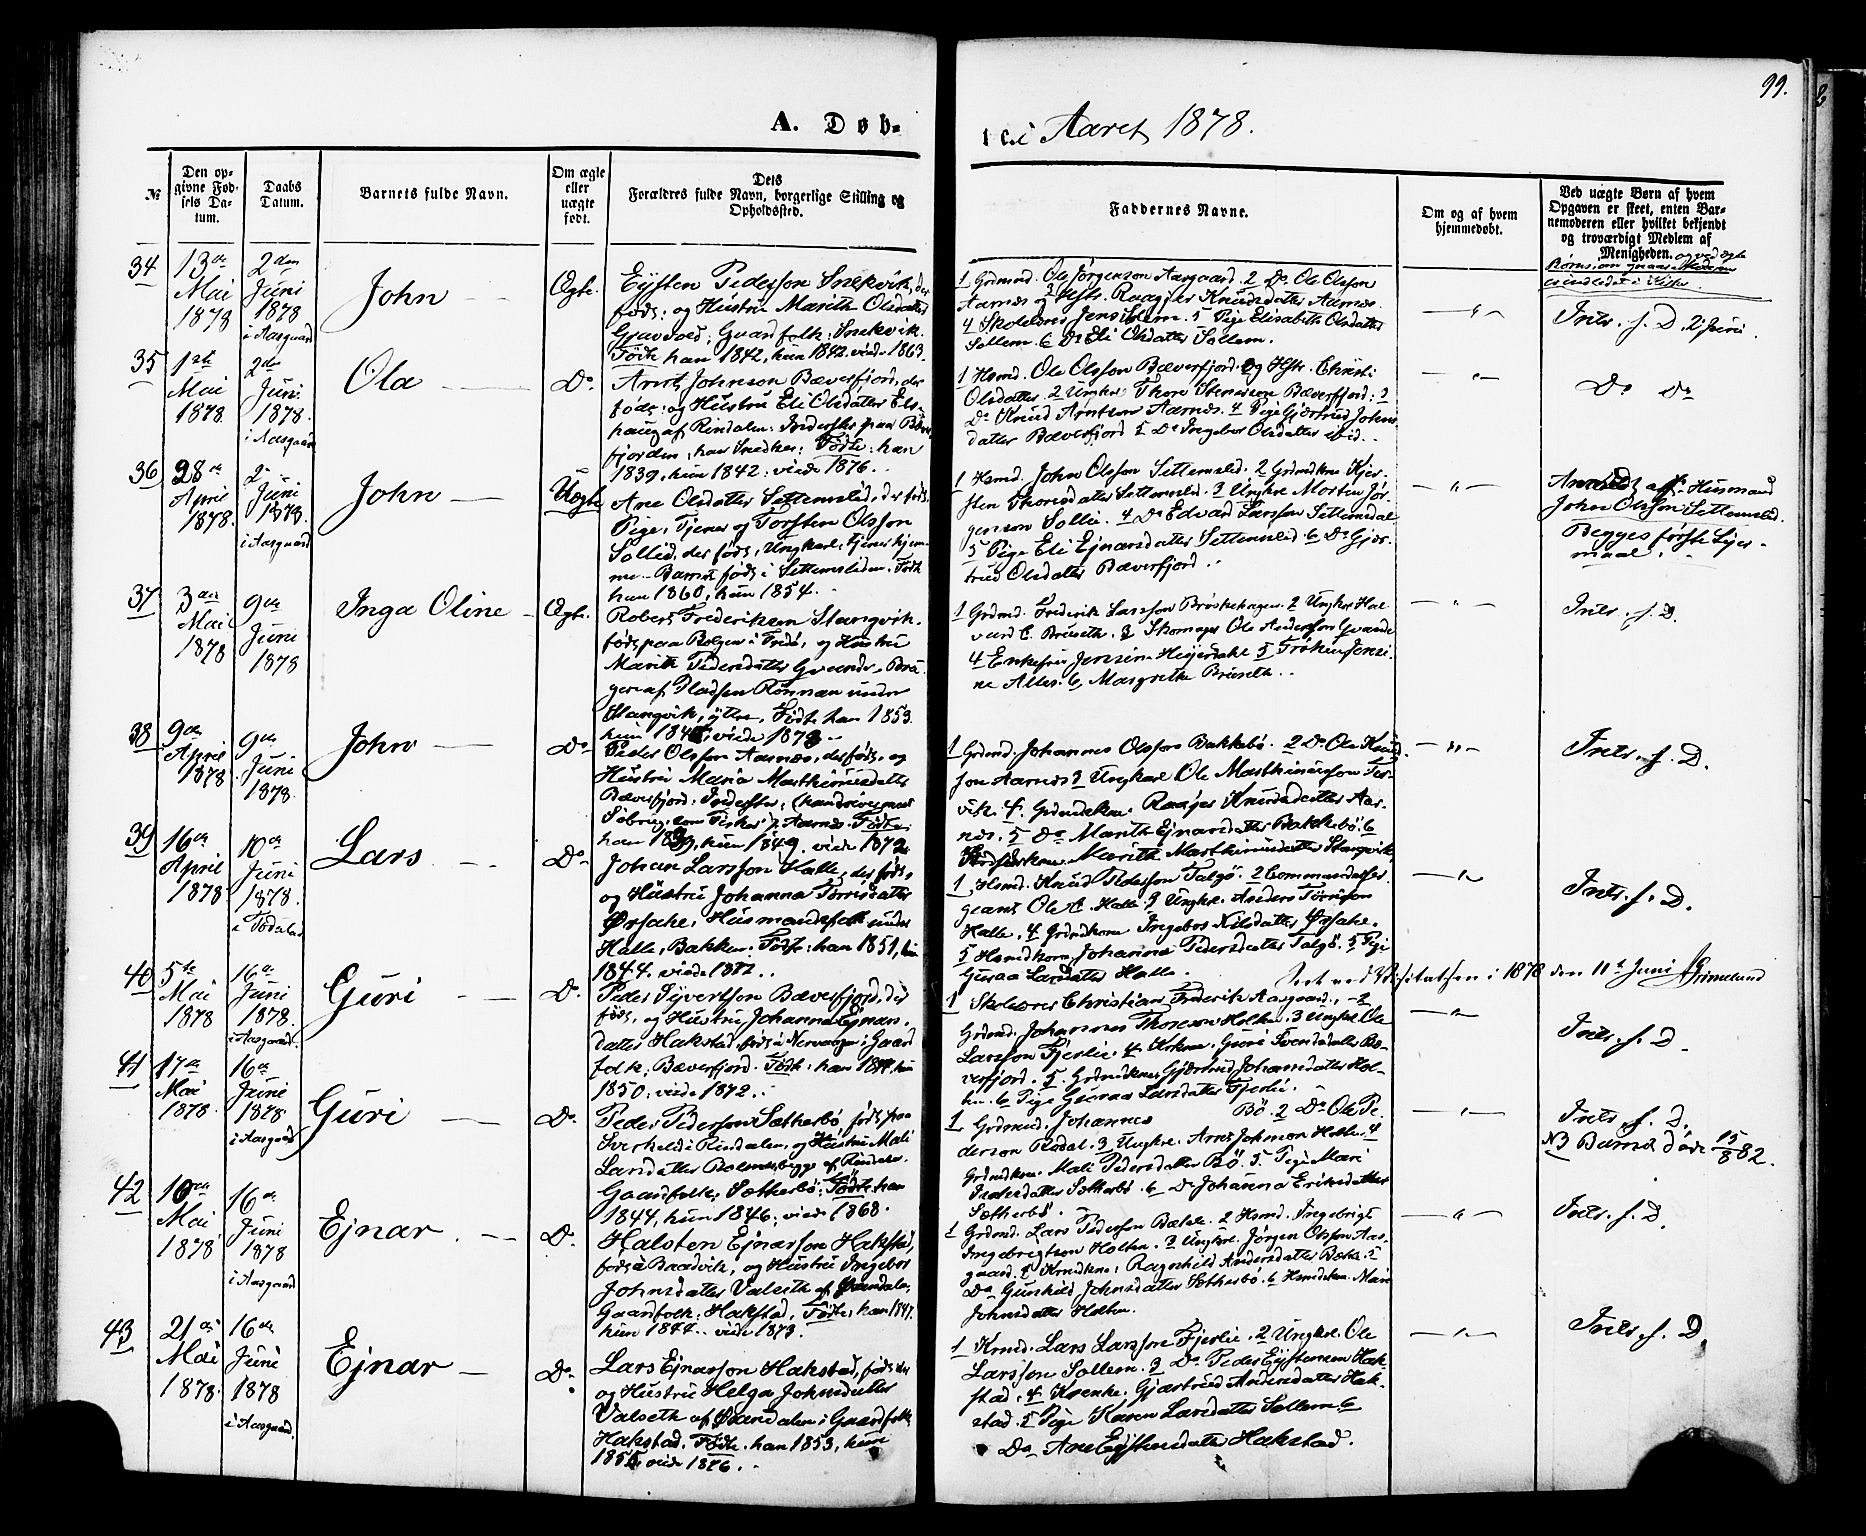 99.
A. Døb-
te i Aaret 1878.
№
Den op-
givne Fød-
sels Da-
tum.
Daabs
Datum.
Barnets fulde Navn.
Om ægte
eller
uægte
født.
Dets
Forældres fulde Navn, borgerlige Stilling og
Opholdssted.
Faddernes Navne.
Om og af hvem
hjemmedøbt.
Ved uægte Børn af hvem
Opgaven er skeet, enten Bar-
nemoderen eller hvilket bekjendt
og troværdigt Medlem af
Menigheden.
34
13de
Mai
1878
2den
Juni
1878
i Aasgaard
John
Ægte.
Eysten Pedersson Snekvik, der
født; og Hustru Marith Olsdatter
Gjravold; Gaardfolk: Snekvik.
Født han 1842, hun 1842. viede 1863.
1 Grdmd. Ole Jørgenson Aasgaard. 2 Do Ole Olsson
Aarnæs og Hstr. Raagjer Knudsdatter Aarnæs.
4 Skolelærer Jens Solem. 5 Pige Elisabeth Olsdatter
Sollem. 6 Do Eli Olsdatter Sollem.
Intr. f. D. 2 Juni
35
1ste
Mai
1878
2den
Juni
1878.
i Aasgaard
Ola
Do
Arnt Johnson Bæverfjord, der
født; og Hustru Eli Olsdatter Els-
haug af Rindalen; Inderster paa Bæver-
fjorden, han Snedker; Født: han
1839, hun 1842. viede 1876.
1 Hsmd. Ole Olsson Bæverfjord og Hstr. Christi
Olsdatter. 2 Ungkar Thore Stenersson Bæverfjord; 3
Do Knud Arntson Aarnæs. 4 Pige Gjertrud Johns-
datter Bæverfjord 5 Do Ingebor Olsdatter ibid.
Do Do
36
28de
April
1878.
2
Juni
1878.
i Aasgaard
John
Uægte
Ane Olsdatter Settemslid, der født,
Pige, Tjener og Torsten Olsson
Sollid, der født, Ungkarl, tjener hjem-
me. Barnet født i Settemsliden. Født
han 1860, hun 1854.
1 Hsmd. John Olsson Settemslid. 2 Grdmdkne Kjer-
sten Thoresdatter Settemslid. 3 Ungkrl Morten Jør-
genson Sollie. 4 Do Edvard Larsson Settemsdal
5 Pige Eli Ejnarsdatter Settemslid. 6 Do Gjer-
trud Olsdatter Bæverfjord.
Anmeldt af Husmand
John Olsson Settemslid.
Begges første Leier-
maal.
37
3die
Mai
1878
9de
Juni
1878
Inga Oline
Ægte.
Robert Frederiksen Stangvik,
født paa Bolgen i Fredø, og Hustru
Marith Pedersdatter Gvande. Bru-
gere af Pladsen Rønnæn under
Stangvik, yttre. Født han 1853.
1 Grdmd. Frederik Larsson Brøskehagen. 2 Ungkrl Hal-
vard C. Bruseth. 3 Skomager Ole Andersson Gvande
4 Enkefru Jensine Heyerdahl 5 Frøken Jensi-
ne Alter. 6 Margrethe Bruseth.
Intr. f. D.
38
9de
April
1878
9de
Juni
1878.
John
Do
Peder Olsson Aarnæs, der født, og
Hustru Maria Marthinusdatter
Bæverfjord; Inderster;
han 1839, hun 1849. viede 1872.
1 Grdmd. Johannes Olsson Bakkebø. 2 Do Ole Knud-
son Aarnæs 3 Ungkarl Ole Marthinusson Ter-
vik. 4. Grdmdkne Raagjer Knudsdatter Aar-
næs. 5 Do Marith Ejnarsdatter Bakkebø. 6
Marith Marthinusdatter Stangvik.
Intr. f. D.
39
16de
April
1878
10de
Juni
1878.
i Todalen
Lars
Do
Johan Larsson Halle, der født,
og Hustru Johanna Tørrisdatter
Ørsahl. Husmandsfolk under
Halle, Bakken. Født: han 1851, hun
1844. viede 1872.
1 Hsmd. Knud Pedersson Talgø. 2 Commandeer
geant Ole C. Halle. 3 Ungkrl. Anders Tørrisson
Halle. 4 Grdmdkone Ingebor Nilsdatter Ørsahl.
5 Hsmdkone Johanna Pedersdatter Talgø. 5 Pige
Guraa Larsdatter Halle.
Intr. f. D.
Seet ved Visitatsen i 1878 den 11te Juni Grimelund
40
5te
Mai
1878
16de
Juni
1878.
i Aasgaard
Guri
Do
Peder Syvertson Bæverfjord, der
født, og Hustru Johanna Ejnars-
datter Hakstad, født i Nervaagen; Gaard-
folk, Bæverfjord. Født: han 18, hun
1850. viede 1872.
1 Skolelærer Christian Frederik Aasgaard. 2
Grdmd. Johannes Thoreson Holten. 3 Ungkrl Ole
Larsson Fjerlie. 4 Guri Svendsdatter Bæ-
verfjord. 5. Grdmdkne Gjertrud Johansdatter Hol-
ten. 6 Pige Guraa Larsdatter Fjerlie.
Intr. f. D.
41
17de
Mai
1878.
16de
Juni
1878
i Aasgaard
Guri
Do
Peder Pederson Sætherbø, født paa
i Rindalen, og Hustru Mali
Larsdatter Bolmesbygge af Rindalen.
Gaardfolk: Sætherbø; Født: han
1844, hun 1846; viede 1868.
1 Grdmd. Johannes Bø. 2 Do Ole Pe-
derson Rødal. 3 Ungkrl. Arnt Johnson Holten. 4
Grdmdkone. Mali Pedersdatter Bø. 5. Pige Mari
Pedersdatter Sætherbø. 6 Do Johanna Eriksdatter
Sætherbø.
Intr. f. D.
NB Barnet døde 15/8 82.
42
10de
Mai
1878
16de
Juni
1878
i Aasgaard
Ejnar
Do
Halsten Ejnarson Hakstad,
født i Braadvik, og Hustru Ingebor
Johnsdatter Valseth af Surendalen.
Gaardfolk: Hakstad. Født: han 1847.
hun 1844. viede 1873.
1 Grdmd. Lars Pederson Bæhle. 2 Hsmd. Ingebrigt
Ingebrigtson Holten. 3 Ungkrl. Jørgen Olsson Aas-
gaard. 4 Ragnhild Andersdatter Bæhle. 5
Do Gunhild Johnsdatter Sætherbø. 6 Hsmdskne. Mari
Johnsdatter Holten.
Intr. f. D.
43
21de
Mai
1878.
16de
Juni
1878
i Aasgaard.
Ejnar
Do
Lars Ejnarson Hakstad, født der
og Hustru Helga Johnsdatter
Valseth af Surendalen; Gaardfolk
Hakstad. Født: han 1853, hun
1855. viede 1876.
1 Lars Larsson Fjerlie. 2 Ungkrl. Ole
Larsson Sollem. 3 Do Peder Eystensen Hak-
stad. 4 Gjertrud Andersdatter Hak-
stad. 5 Pige Karen Larsdatter Sollem 6
Do Ane Eystensdatter Hakstad.
Intr. f. D.